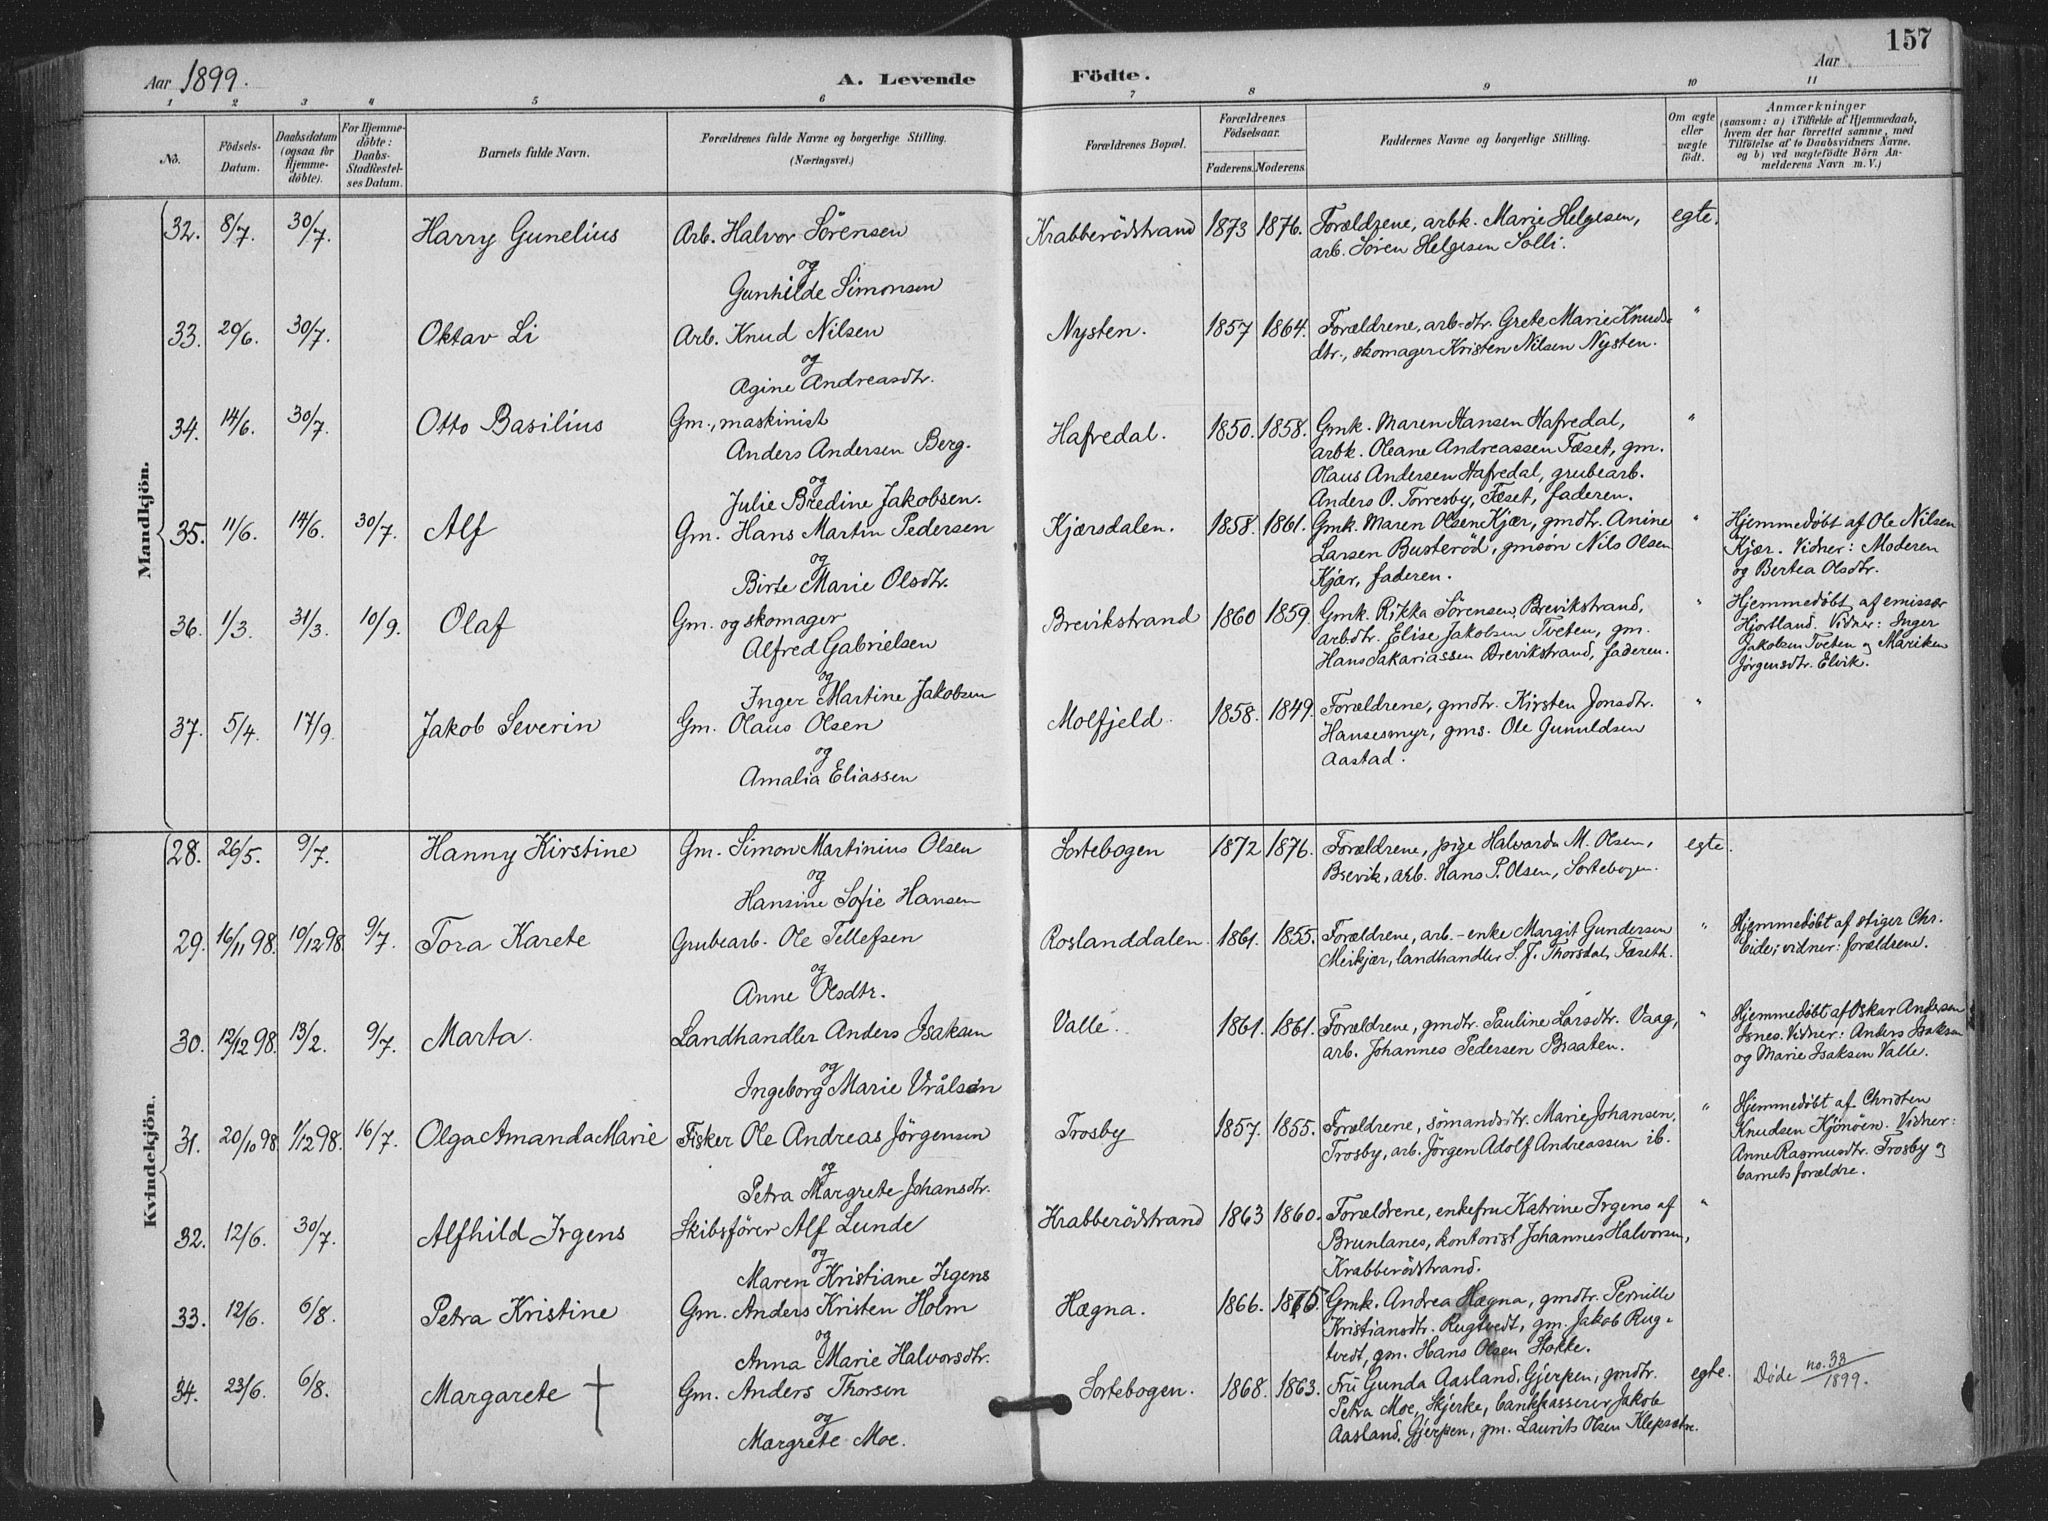 157
Aar 1899.
A. Levende Födte.
Aar
1 2 3 4 5 6 7 8 9 10 11
No.
Födsels-Datum.
Daabsdatum (ogsaa for Hjemme-döbte).
For Hjemme-döbte: Daabs-Stadfæstel-ses Datum.
Barnets fulde Navn.
Forældrenes fulde Navne og borgerlige Stilling.
(Næringsvei.)
Forældrenes Bopæl.
Forældrenes Födselsaar.
Faderens. Moderens.
Faddernes Navne og borgerlige Stilling.
Om ægte eller uægte födt.
Anmærkninger
(saasom: a) i Tilfælde af Hjemmedaab,
hvem der har forrettet samme, med
Tilföielse af to Daabsvidners Navne.
og b) ved uægtefödte Börn An-
melderens Navn m. V.)
Mandkjön.
32. 8/7. 30/7. Harry Gunelius Arb. Halvor Sörensen Krabberödstrand 1873 1876. Forældrene, arbk. Marie Helgesen, egte.
arb. Sören Helgesen Solli.
og
Gunhilde Simonsen
33. 29/6. 30/7. Oktav Li Arb. Knud Nilsen Nysten. 1857 1864. Forældrene, arb-dtr. Grete Marie Knuds- "
dtr., skomager Kristen Nilsen Nysten.
og
Agine Andreasdtr.
34. 14/6. 30/7. Otto Basilius Gm., maskinist Hafredal. 1850. 1858. Gmk. Maren Hansen Hafredal, "
Anders Andersen Berg. arbk. Oleane Andreassen Fæset, gm.
og Olaus Andersen Hafredal, grubearb.
Julie Bredine Jakobsen. Anders O. Torresby, Fæset, faderen.
35. 11/6. 14/6. 30/7. Alf Gm. Hans Martin Pedersen Kjærsdalen. 1858. 1861. Gmk. Maren Olsen Kjær, gmdtr. Anine " Hjemmedøbt af Ole Nilsen
Larsen Busteröd, gmsøn Nils Olsen Kjær. Vidner: Moderen
og Kjær, faderen. og Bertea Olsdtr.
Birte Marie Olsdtr.
36. 1/3. 31/3. 10/9. Olaf Gm. og skomager Brevikstrand 1860 1859. Gmk. Rikka Sørensen, Brevikstrand, " Hjemmedøbt af emissær
Alfred Gabrielsen arbdtr. Elise Jakobsen Tveten, gm. Hjortland. Vidner: Inger
og Hans Sakariassen Brevikstrand, faderen. Jakobsen Tveten og Mariken
Inger Martine Jakobsen Jørgensdtr. Elvik.
37. 5/4. 17/9. Jakob Severin Gm. Olaus Olsen Molfjeld. 1858. 1849. Forældrene, gmdtr. Kirsten Jonsdtr. "
Hansesmyr, gms. Ole Gunuldsen
og Aastad.
Amalia Eliassen
Kvindekjön.
28. 26/5. 9/7. Hanny Kirstine Gm. Simon Martinius Olsen Sortebogen 1872 1876. Forældrene, pige Halvarda M. Olsen, egte.
Brevik, arb. Hans P. Olsen, Sortebogen.
og
Hansine Sofie Hansen
29. 16/11 98. 10/12 98. 9/7. Tora Karete Grubearb. Ole Tellefsen Roslanddalen. 1861. 1855. Forældrene, arb.-enke Margit Gundersen " Hjemmedøbt af stiger Chr.
Meikjær, landhandler S. J. Thorsdal, Fæseth. Eide; vidner: forældrene.
og
Anne Olsdtr.
30. 12/12 98. 13/2. 9/7. Marta. Landhandler Anders Isaksen Valle. 1861. 1861. Forældrene, gmdtr. Pauline Larsdtr. Vaag, " Hjemmedøbt af Oskar Andersen
arb. Johannes Pedersen Braaten. Isnes. Vidner: Anders Isaksen
og og Marie Isaksen Valle.
Ingeborg Marie Vrålsen
31. 20/10 98. 1/12 98. 16/7. Olga Amanda Marie Fisker Ole Andreas Jörgensen Trosby 1857. 1855. Forældrene, sömandsdtr. Marie Johansen, " Hjemmedøbt af Christen
Trosby, arb. Jörgen Adolf Andreassen ib. Knudsen Kjönöen. Vidner:
og Anne Rasmusdtr. Trosby og
Petra Margrete Johansdtr. barnets forældre.
32. 12/6. 30/7. Alfhild Irgens Skibsförer Alf Lunde Krabberödstrand 1863 1860. Forældrene, enkefru Katrine Irgens af "
Brunlanes, kontorist Johannes Halvorsen,
og Krabberödstrand.
Maren Kristiane Irgens
33. 12/6. 6/8. Petra Kristine Gm. Anders Kristen Holm Hægna. 1866. 1875 Gmk. Andrea Hægna, gmdtr. Pernille
og Kristiansdtr. Rugtvedt, gm. Jakob Rug-
Anna Marie Halvorsdtr. tvedt, gm. Hans Olsen Stokke.
34. 23/6. 6/8. Margarete † Gm. Anders Thorsen Sortebogen. 1868. 1863. Fru Gunda Aasland, Gjerpen, gmdtr. egte. Døde no. 33/1899.
og Petra Moe, Skjerke, bankkasserer Jakob
Margrete Moe. Aasland, Gjerpen, gm. Laurits Olsen Klepsætre.